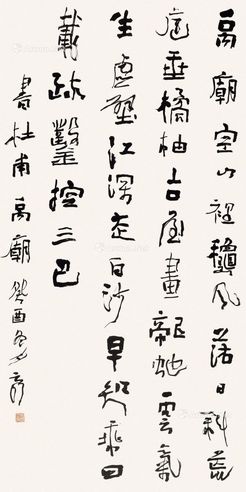 禹廟空山裡龝風落日斜荒
庭垂橘柚古屋畫龍蛇雲氣
生虛壁江深走白沙早知乘四
載疏鑿控三巴
書杜甫禹廟癸酉冬